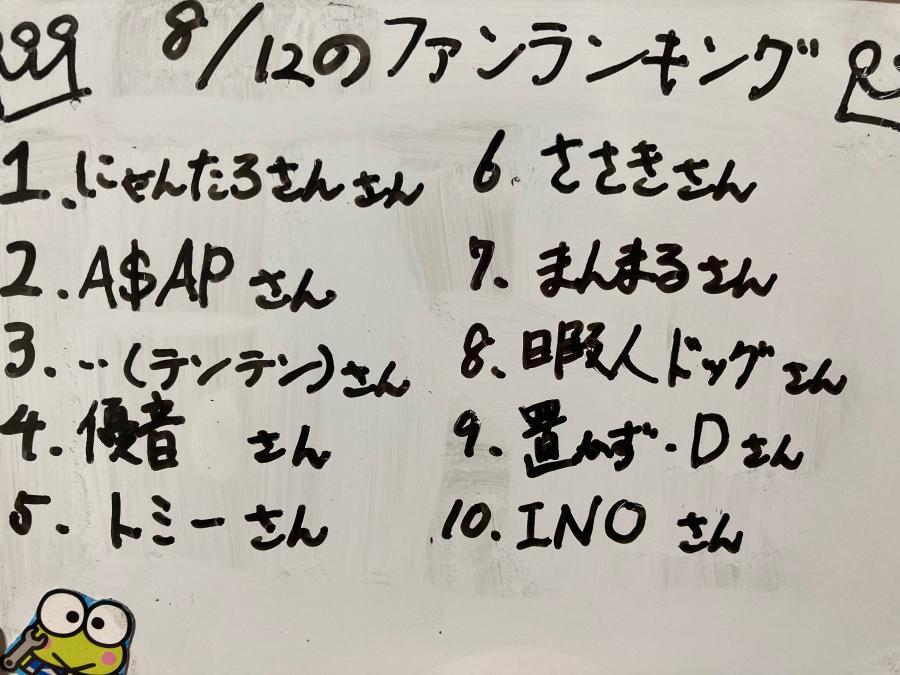 8/12のファンランキング
1.にゃんたろさんさん
2.A$APさん
3.‥(テンテン)さん
4.優音 さん
5.トミーさん
6.ささきさん
7.まんまるさん
8.暇人ドッグさん
9.置かず・Dさん
10.INO さん